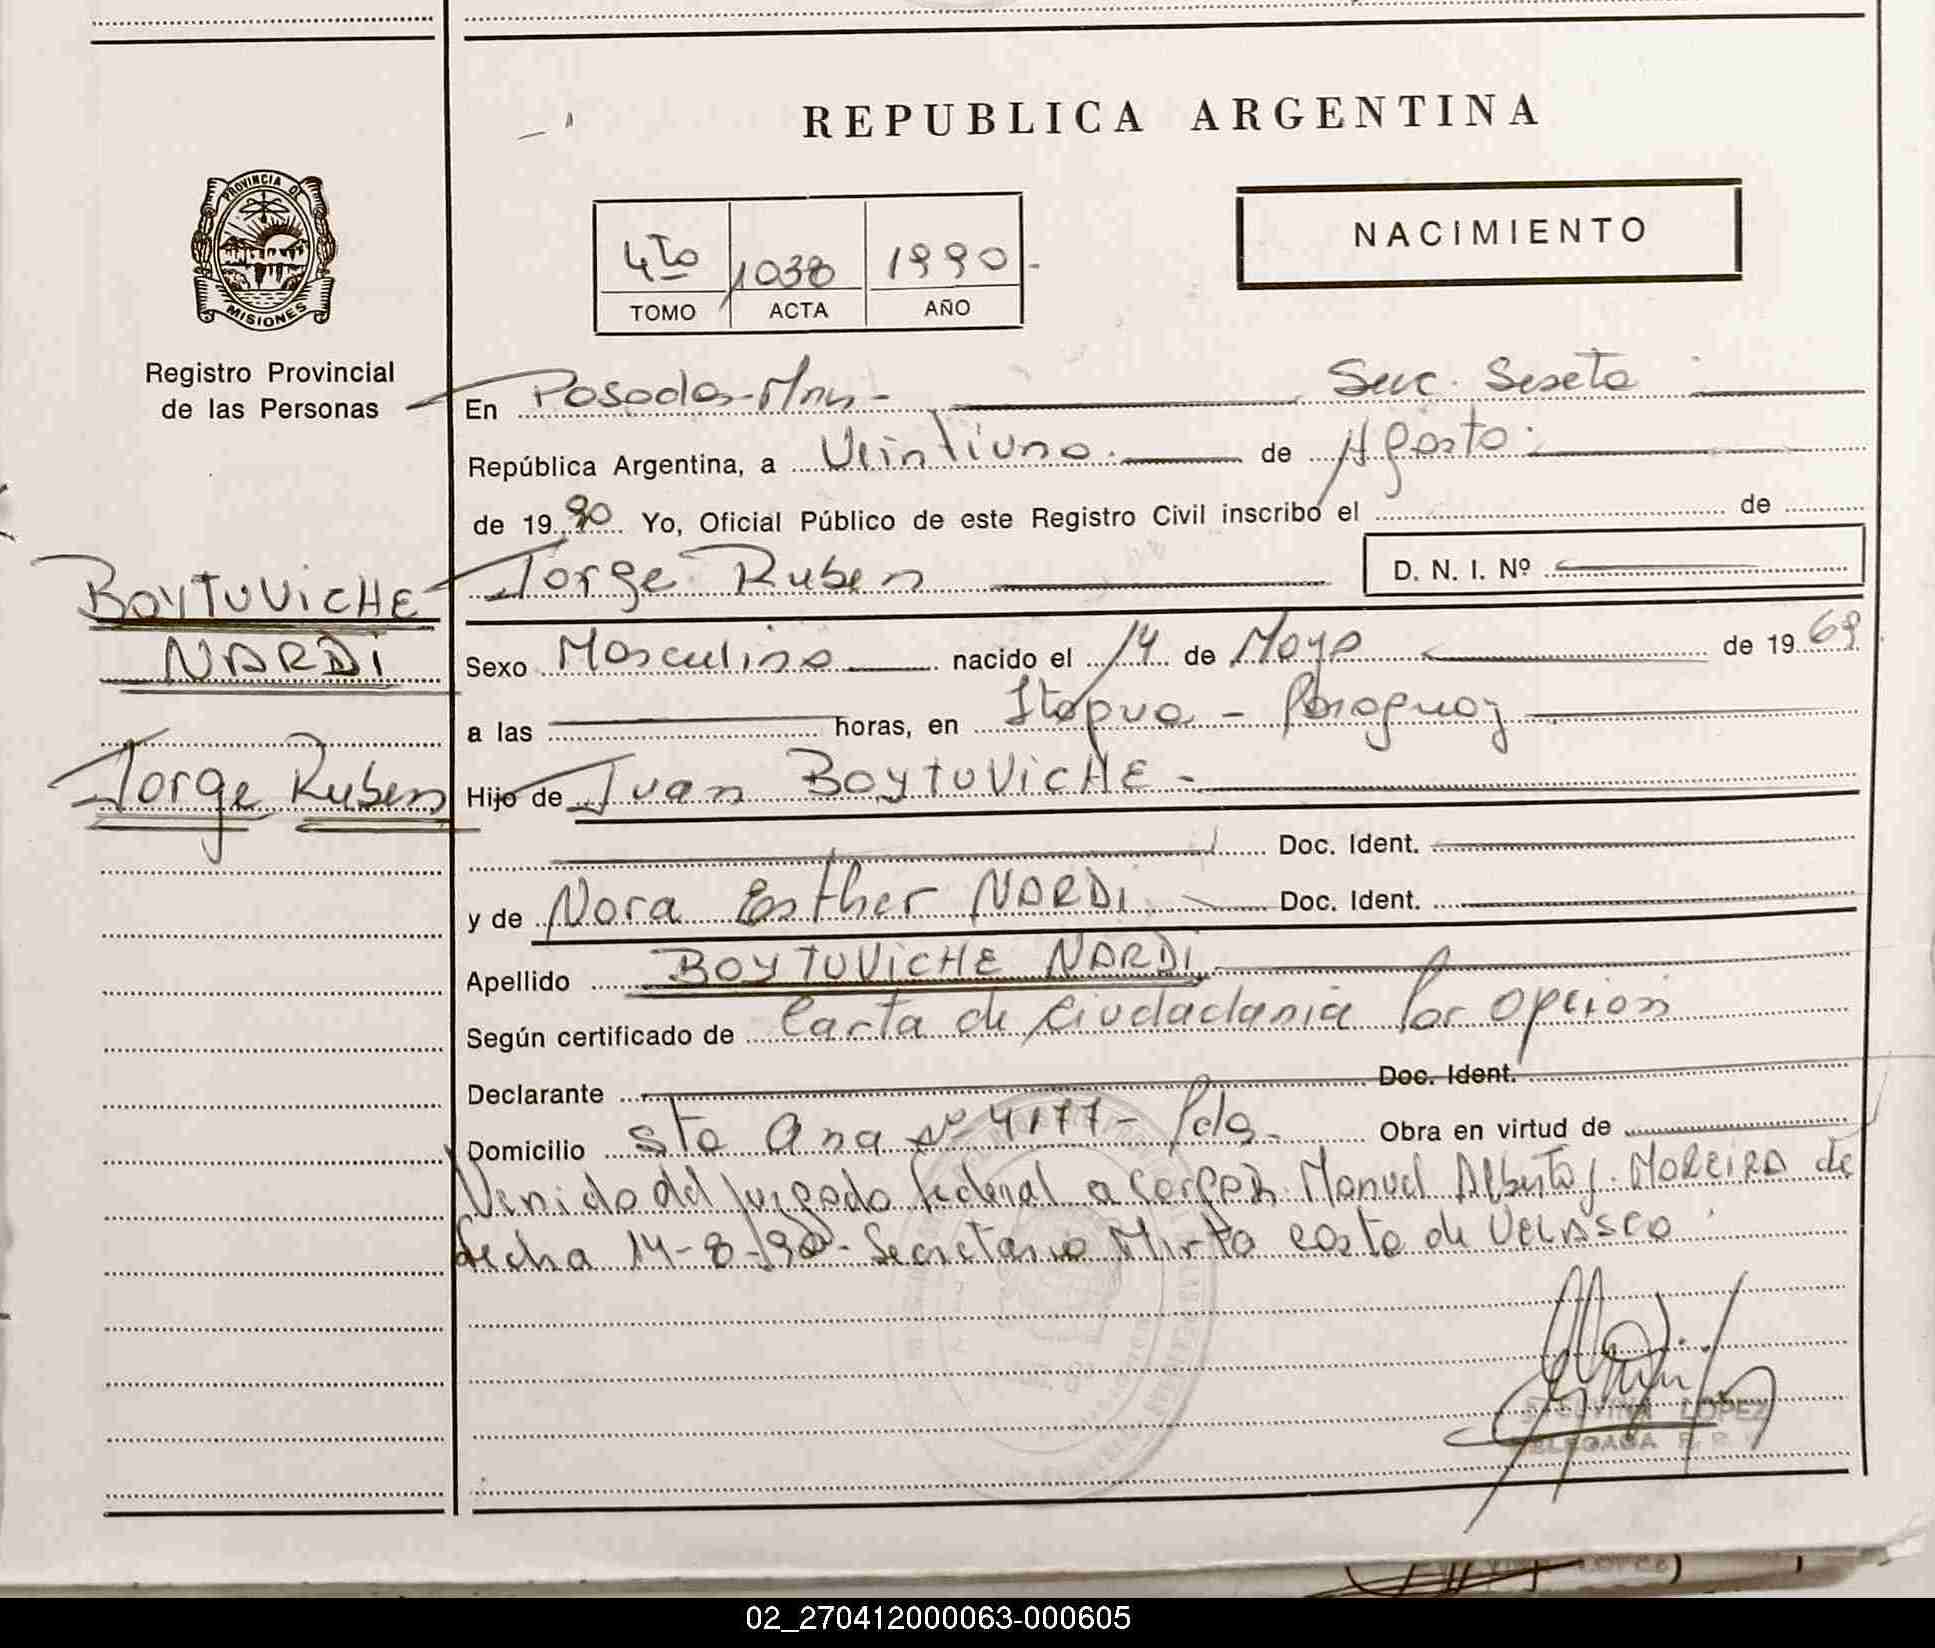 REPUBLICA ARGENTINA
NACIMIENTO
4to 1038 1990
TOMO ACTA AÑO
PROVINCIA DE MISIONES
Registro Provincial
de las Personas
En Posadas-Mnes- Secc. Sexta
República Argentina, a Veintiuno de Agosto
de 1990 Yo, Oficial Público de este Registro Civil inscribo el de
Jorge Ruben D. N. I. Nº
BOYTUVICHE
NARDI
Jorge Ruben
Sexo Masculino nacido el 14 de Mayo de 1969
a las horas, en Itapua - Paraguay
Hijo de Juan BOYTUVICHE -
Doc. Ident.
y de Nora Esther NARDI Doc. Ident.
Apellido BOYTUVICHE NARDI
Según certificado de Carta de Ciudadania Por Opcion
Declarante Doc. Ident.
Domicilio Sta Ana Nº 4177- Pdas. Obra en virtud de
Venido del Juzgado Federal a Cargo Manuel Alberto J. MOREIRA de
fecha 14-8-90- Secretario Mirta de VELASCO
LOPEZ
02_270412000063-000605